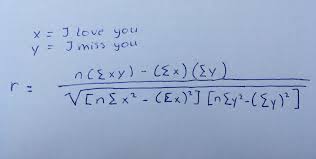 x = I love you
y = I miss you
r = n(Σxy) - (Σx)(Σy) / √[nΣx² - (Σx)²][nΣy² - (Σy)²]